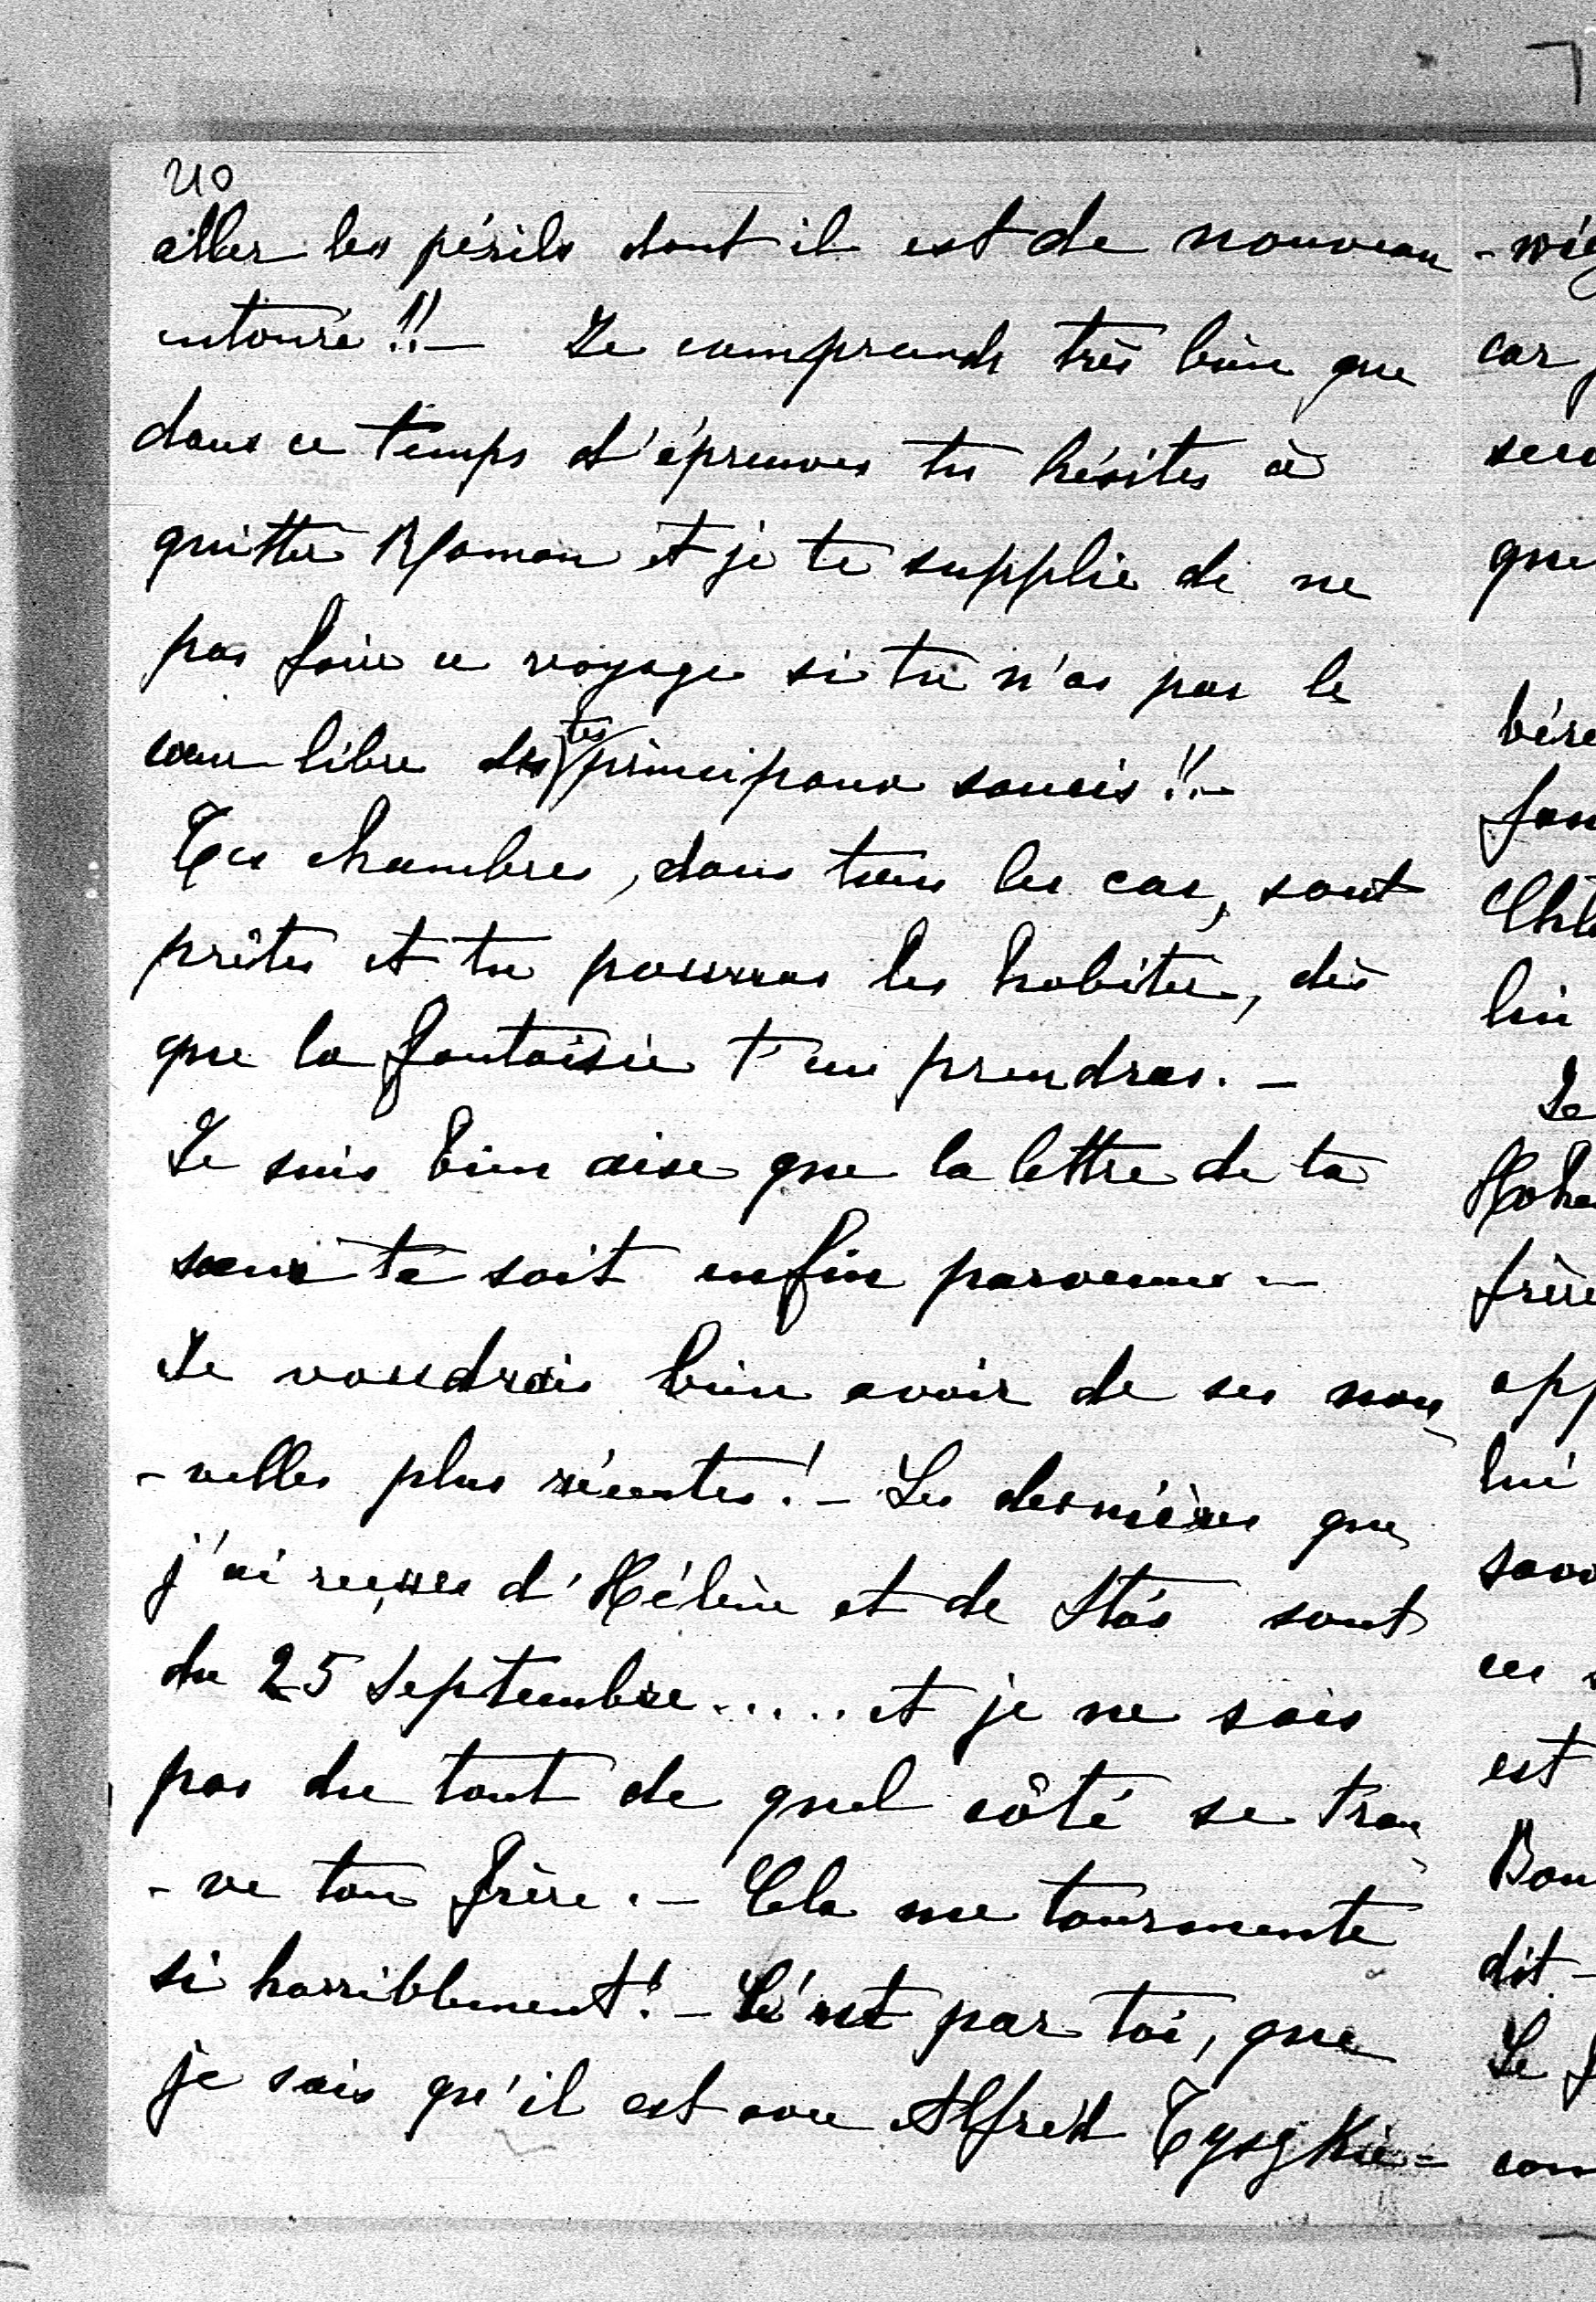 210
aller les périls dont il est de nouveau
entouré !! — Je comprends très bien que
dans ce temps d'épreuves tu hésites à
quitter Maman et je te supplie de ne
pas faire ce voyage si tu n'as pas le
cœur libre de tes principaux soucis !! —
Tes chambres, dans tous les cas, sont
prêtes et tu pourras les habiter, dès
que la fantaisie t'en prendras. —
Je suis bien aise que la lettre de ta
sœur te soit enfin parvenue —
Je voudrais bien avoir de ses nou-
-velles plus récentes ! — Les dernières que
j'ai reçues d'Hélène et de Stás sont
du 25 Septembre ..... et je ne sais
pas du tout de quel côté se trou-
-ve ton frère. — Cela me tourmente
si horriblement ! — C'est par toi, que
je sais qu'il est avec Alfred Tyszkie-
car
que
lui
Je
frère
lui
est
dit —
Le